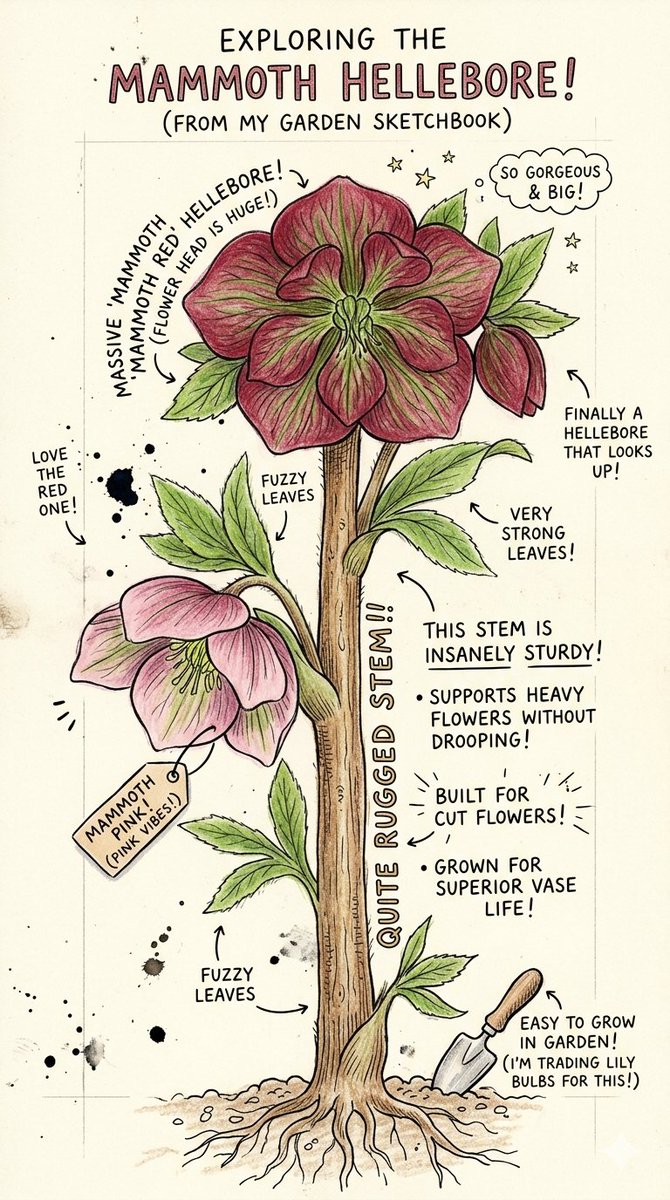 EXPLORING THE
MAMMOTH HELLEBORE!
(FROM MY GARDEN SKETCHBOOK)
SO GORGEOUS
& BIG!
MASSIVE 'MAMMOTH
'MAMMOTH RED' HELLEBORE!
(FLOWER HEAD IS HUGE!)
FINALLY A
HELLEBORE
THAT LOOKS
UP!
LOVE
THE
RED
ONE!
FUZZY
LEAVES
VERY
STRONG
LEAVES!
THIS STEM IS
INSANELY STURDY!
• SUPPORTS HEAVY
FLOWERS WITHOUT
DROOPING!
QUITE RUGGED STEM!!
MAMMOTH
PINK!
(PINK VIBES!)
BUILT FOR
CUT FLOWERS!
• GROWN FOR
SUPERIOR VASE
LIFE!
FUZZY
LEAVES
EASY TO GROW
IN GARDEN!
(I'M TRADING LILY
BULBS FOR THIS!)